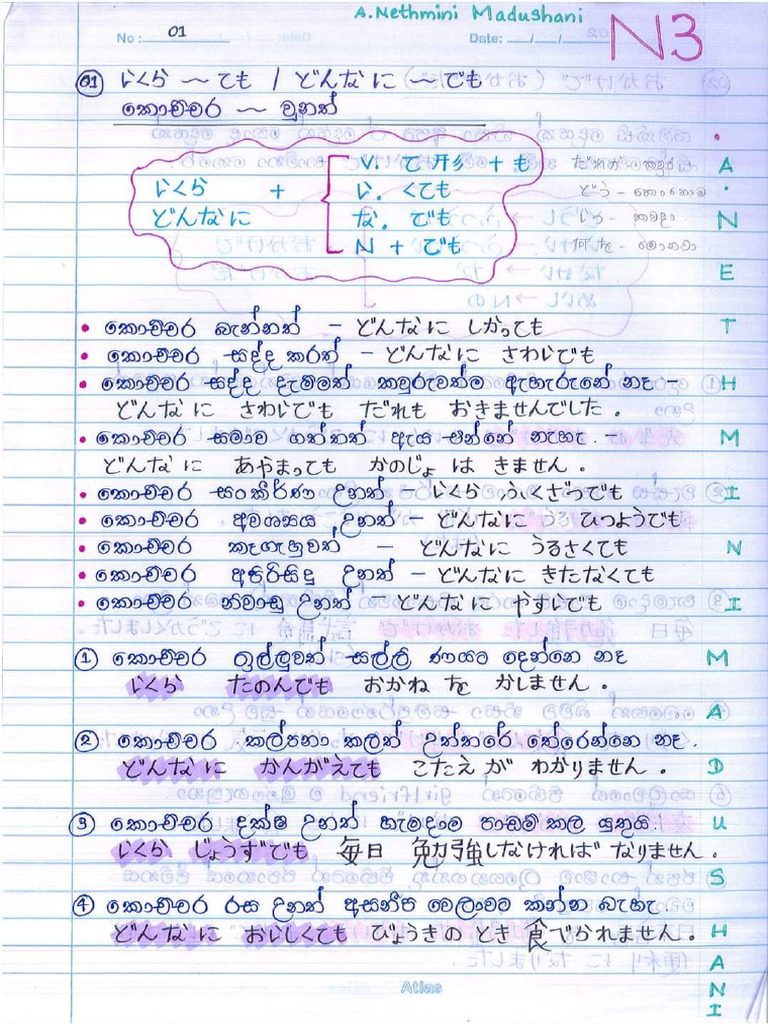 A. Nethmini Madushani
No: 01
Date: __/__/__
N3
01 いくら ～ ても / どんなに ～ でも
කොච්චර ~ වුනත්
いくら + V. て形 + も
どんなに い. くても
な. でも
N + でも
だれか - කවුරු
どう - කොහොම
いつ - කවදා
何だ - මොකවා
• කොච්චර බැන්නත් - どんなに しかっても
• කොච්චර සද්ද කරත් - どんなに さわいでも
• කොච්චර සද්ද දැම්මත් කවුරුවත්ම ඇහැරුනේ නෑ -
どんなに さわいでも だれも おきませんでした。
• කොච්චර සමාව ගත්තත් ඇය එන්නේ නැහැ. -
どんなに あやまっても かのじょ は きません。
• කොච්චර සංකීර්ණ උනත් - いくら ふくざつでも
• කොච්චර අවශ්‍යය උනත් - どんなに ひつようでも
• කොච්චර කෑගැහුවත් - どんなに うるさくても
• කොච්චර අපිරිසිදු උනත් - どんなに きたなくても
• කොච්චර නිවාඩු උනත් - どんなに やすいでも
① කොච්චර ඉල්ලුවත් සල්ලි ණයට දෙන්නෙ නෑ
いくら たのんでも おかね を かしません。
② කොච්චර කල්පනා කලත් උත්තරේ තේරෙන්නෙ නෑ.
どんなに かんがえても こたえ が わかりません。
③ කොච්චර දක්ෂ උනත් හැමදාම පාඩම් කල යුතුයි.
いくら じょうずでも 毎日 勉強しなければ なりません。
④ කොච්චර රස උනත් අසනීප වෙලාවට කන්න බැහැ.
どんなに おいしくても びょうきの とき 食べられません。
Atlas
A. NETHMINI MADUSHANI